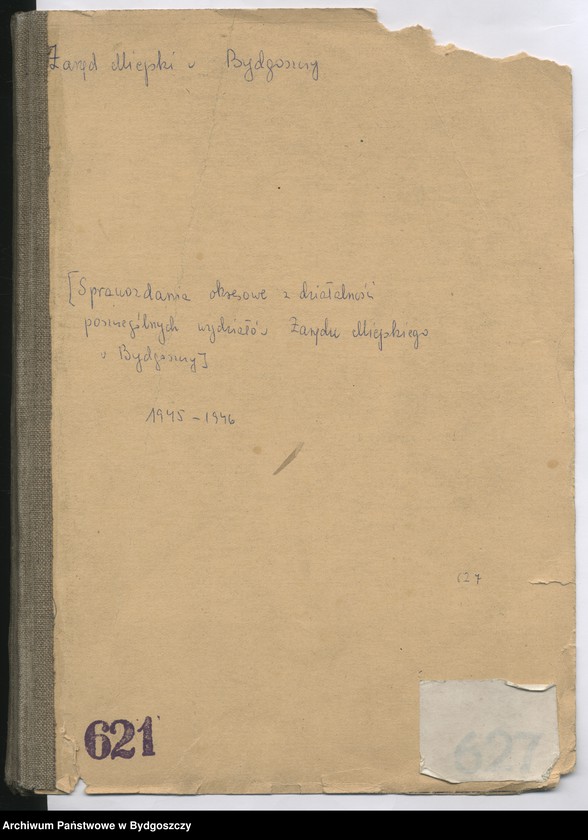 Zarząd Miejski w Bydgoszczy
[Sprawozdania okresowe z działalności
poszczególnych wydziałów Zarządu Miejskiego
w Bydgoszczy]
1945-1946
627
621
627
Archiwum Państwowe w Bydgoszczy